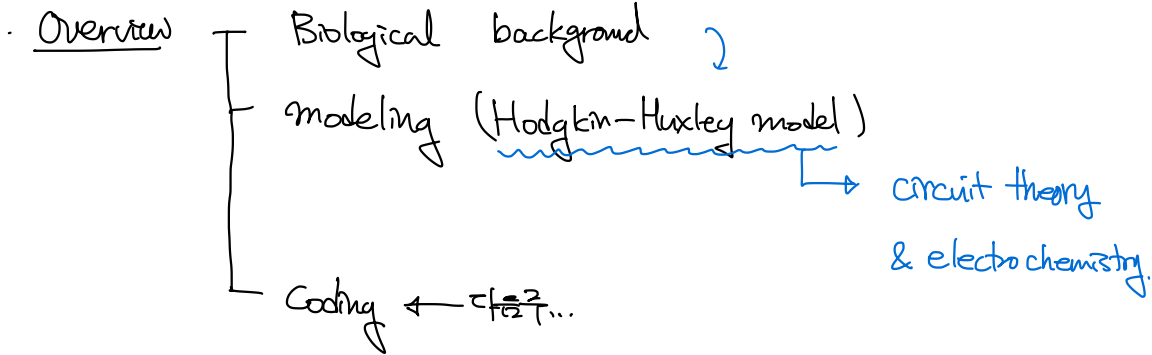 · Overview
Biological background
modeling (Hodgkin-Huxley model)
circuit theory
& electrochemistry.
Coding ←